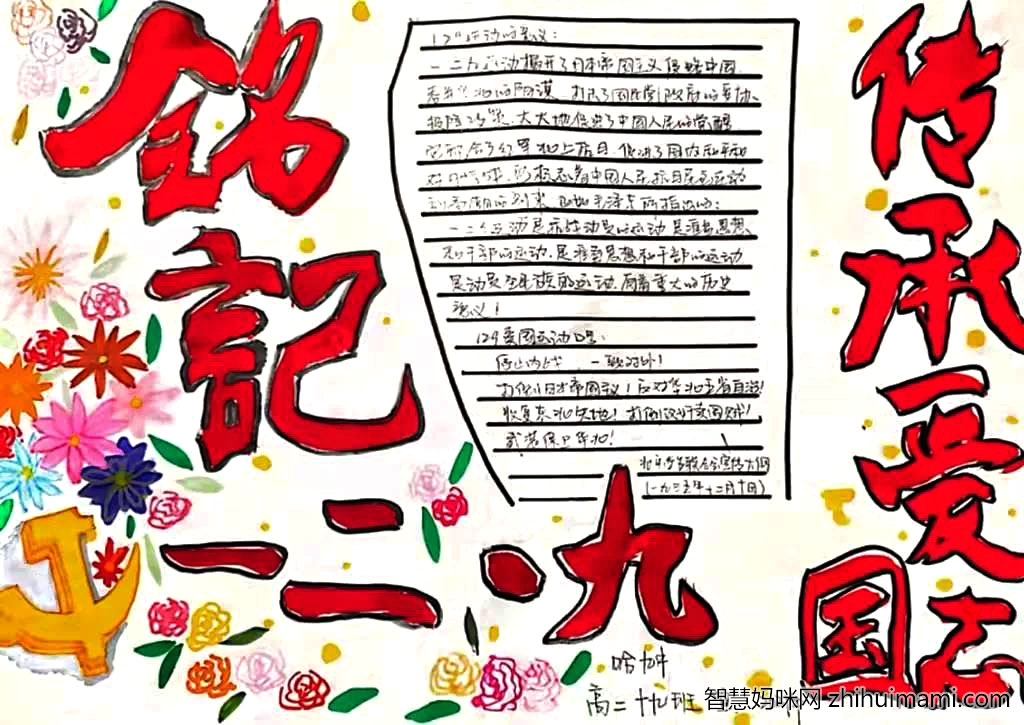 銘記
一二·九
传承爱国志
129运动的意义:
一二九运动揭开了日本帝国主义侵略中国
吞并华北的阴谋,打击了国民党政府的妥协
投降政策,大大地促进了中国人民的觉醒
它配合了红军北上抗日,促进了国内和平和
对日抗战,它标志着中国人民抗日民主运动
一二九运动是抗战动员的运动,是准备思想
和干部的运动,是准备思想和干部的运动
是动员全民族的运动,有着重大的历史
意义!
129爱国运动口号:
停止内战 一致对外!
打倒日本帝国主义!反对华北五省自治!
收复东北失地!打倒汉奸卖国贼!
武装保卫华北!
(一九三五年十二月十日)
高二十九班
智慧妈咪网 zhihuimami.com